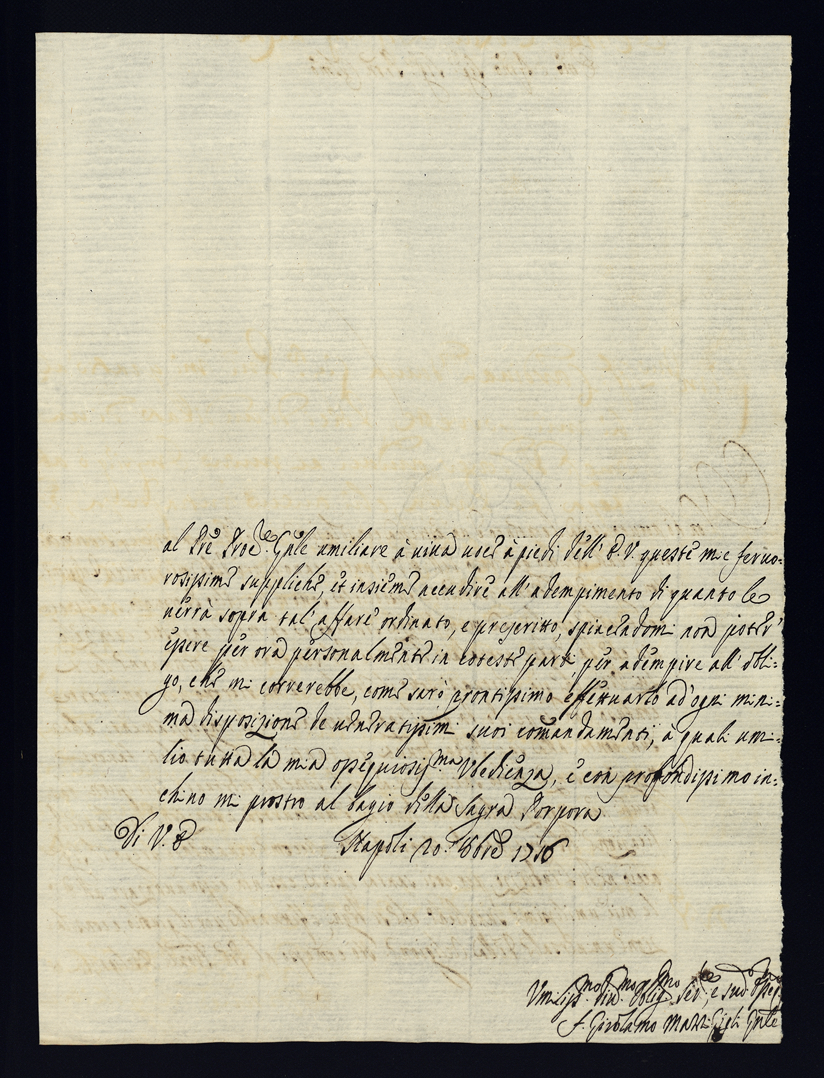 al Pre Proc.re Gnle umiliare à viva voce à piedi dell' E. V. queste mie fervo:
rosissime suppliche, et insieme accudire all' adempimento di quanto le
verrà sopra tal' affare ordinato, e prescritto, spiacendomi non poter
essere per ora personalmente in coteste parti per adempire all' obli:
go, che mi correrebbe, come sarò prontissimo effettuarlo ad' ogni mini:
ma disposizione de veneratissimi suoi comandamenti, a quali umi:
lio tutta la mia ossequiosiss.ma Ubedienza, e con profondissimo in:
chino mi prostro al bagio della Sagra Porpora
Di V. E. Napoli 20. 1716
Umiliss.mo div.mo Oblig.mo ser.re, e sud.
f. Girolamo Gnle